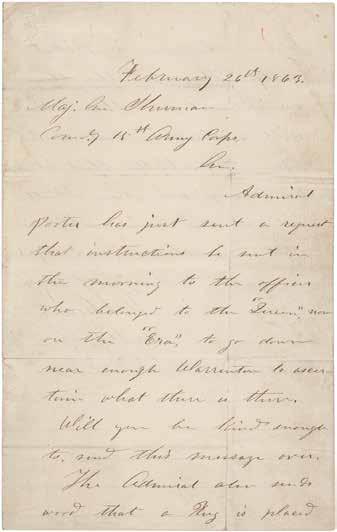 February 26th 1863.
Maj. Gn. Sherman
Comd.g 15th Army Corps.
Gn.
Admiral
Porter has just sent a request
that instructions be sent in
the morning to the officer
who belonged to the "Queen", now
on the "Era", to go down
near enough Warrenton to ascer-
tain what there is there.
Will you be kind enough
to send this message over.
The Admiral also sends
word that a Flag is placed